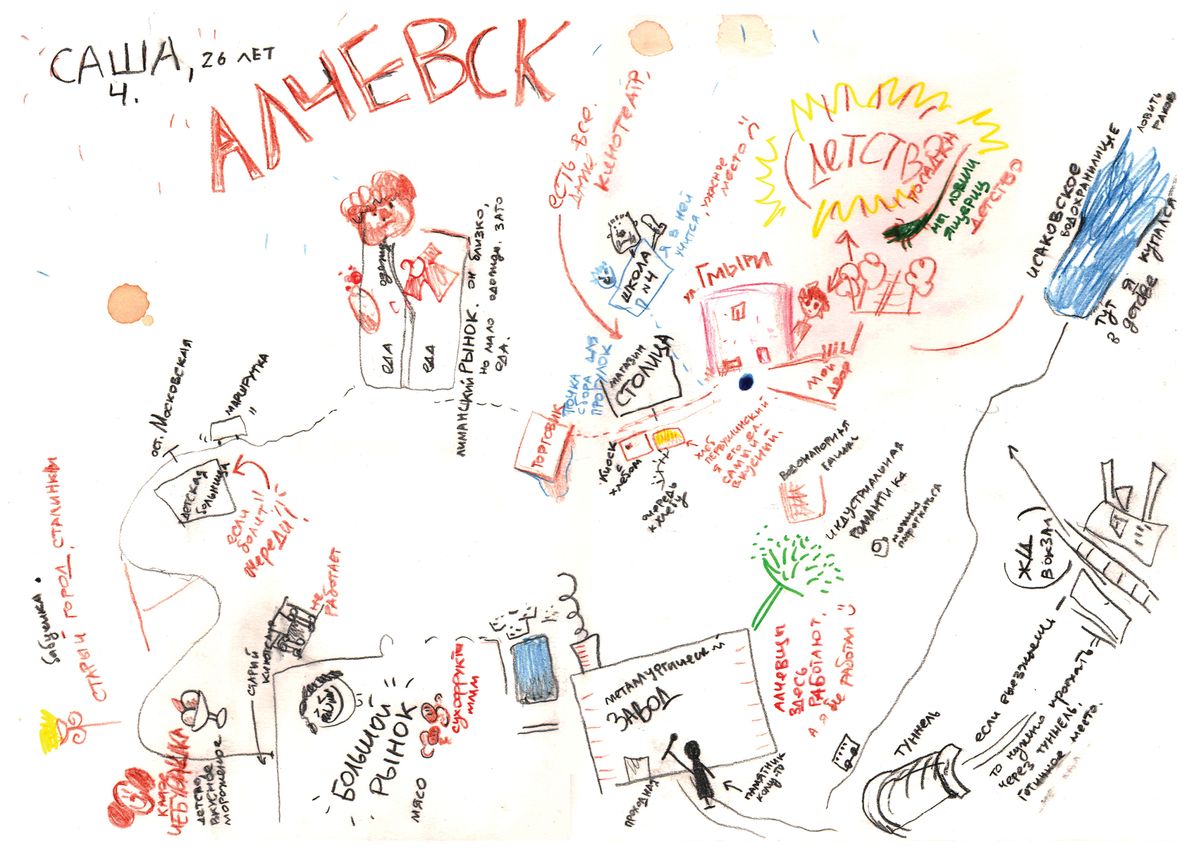 САША, 26 ЛЕТ
Ч.
АЛЧЕВСК
ЕСТЬ ВСЕ.
ДАЖЕ
КИНОТЕАТР,
ШКОЛА
№4
Я В НЕЙ
УЧИТСЯ, УЖАСНОЕ
МЕСТО
ДЕТСТВО
ПОСАДКИ
МЫ ЛОВИЛИ
ЯЩЕРИЦ
ДЕТСТВО
ИСАКОВСКОЕ
ВОДОХРАНИЛИЩЕ
ЛОВИТЬ
РАКОВ
ТУТ Я
В ДЕТСВЕ КУПАЛСЯ
ул ГМЫРИ
МОЙ
ДВОР
ОДЕЖДА
ЕДА
ЕДА
ЛИМАНСКИЙ РЫНОК. ОН БЛИЗКО,
НО МАЛО ОДЕЖДЫ, ЗАТО
ЕДА.
МАГАЗИН
СТОЛИЦА
ТОЧКА
СБОРА ДЛЯ
ПРОГУЛОК
ТОРГОВИК
КИОСК
С
ХЛЕБОМ
ОЧЕРЕДЬ
К ХЛЕБУ
ХЛЕБ
ПЕРВУШИНСКИЙ
Я ЕГО ЕЛ.
САМЫЙ
ВКУСНИЙ
ОСТ. МОСКОВСКАЯ
МАРШРУТКА
ДЕТСКАЯ
БОЛЬНИЦА
ЕСЛИ
БОЛИТ
ЧЕРЕДИ!
ВОДОНАПОРНАЯ
БАШНЯ
ИНДУСТРИАЛЬНАЯ
РОМАНТИКА
МОЖНО
ПОФОТКАТЬСЯ
Ж/Д
ВОКЗАЛ
бабушка
СТАРЫЙ ГОРОД, СТАЛИНКИ
СТАРИЙ КИНОТЕАТР
НЕ
РАБОТАЕТ
КАФЕ
ЧЕБУРАШКА
ДЕТСТВО,
ВКУСНОЕ
МОРОЖЕНОЕ
БОЛЬШОЙ
РЫНОК
МЯСО
СУХОФРУКТЫ
МММ
МЕТАЛЛУРГИЧЕСКИЙ
ЗАВОД
ПРОХОДНАЯ
ПАМЯТНИК
КОМУ-ТО
АЛЧЕВЦЫ
ЗДЕСЬ
РАБОТАЮТ,
А Я НЕ РАБОТАЛ
ТУННЕЛЬ
ЕСЛИ ВЫЕЗЖАЕШЬ —
ТО НУЖНО ПРОЕХАТЬ
ЧЕРЕЗ ТУННЕЛЬ
ГОТИЧНОЕ МЕСТО.